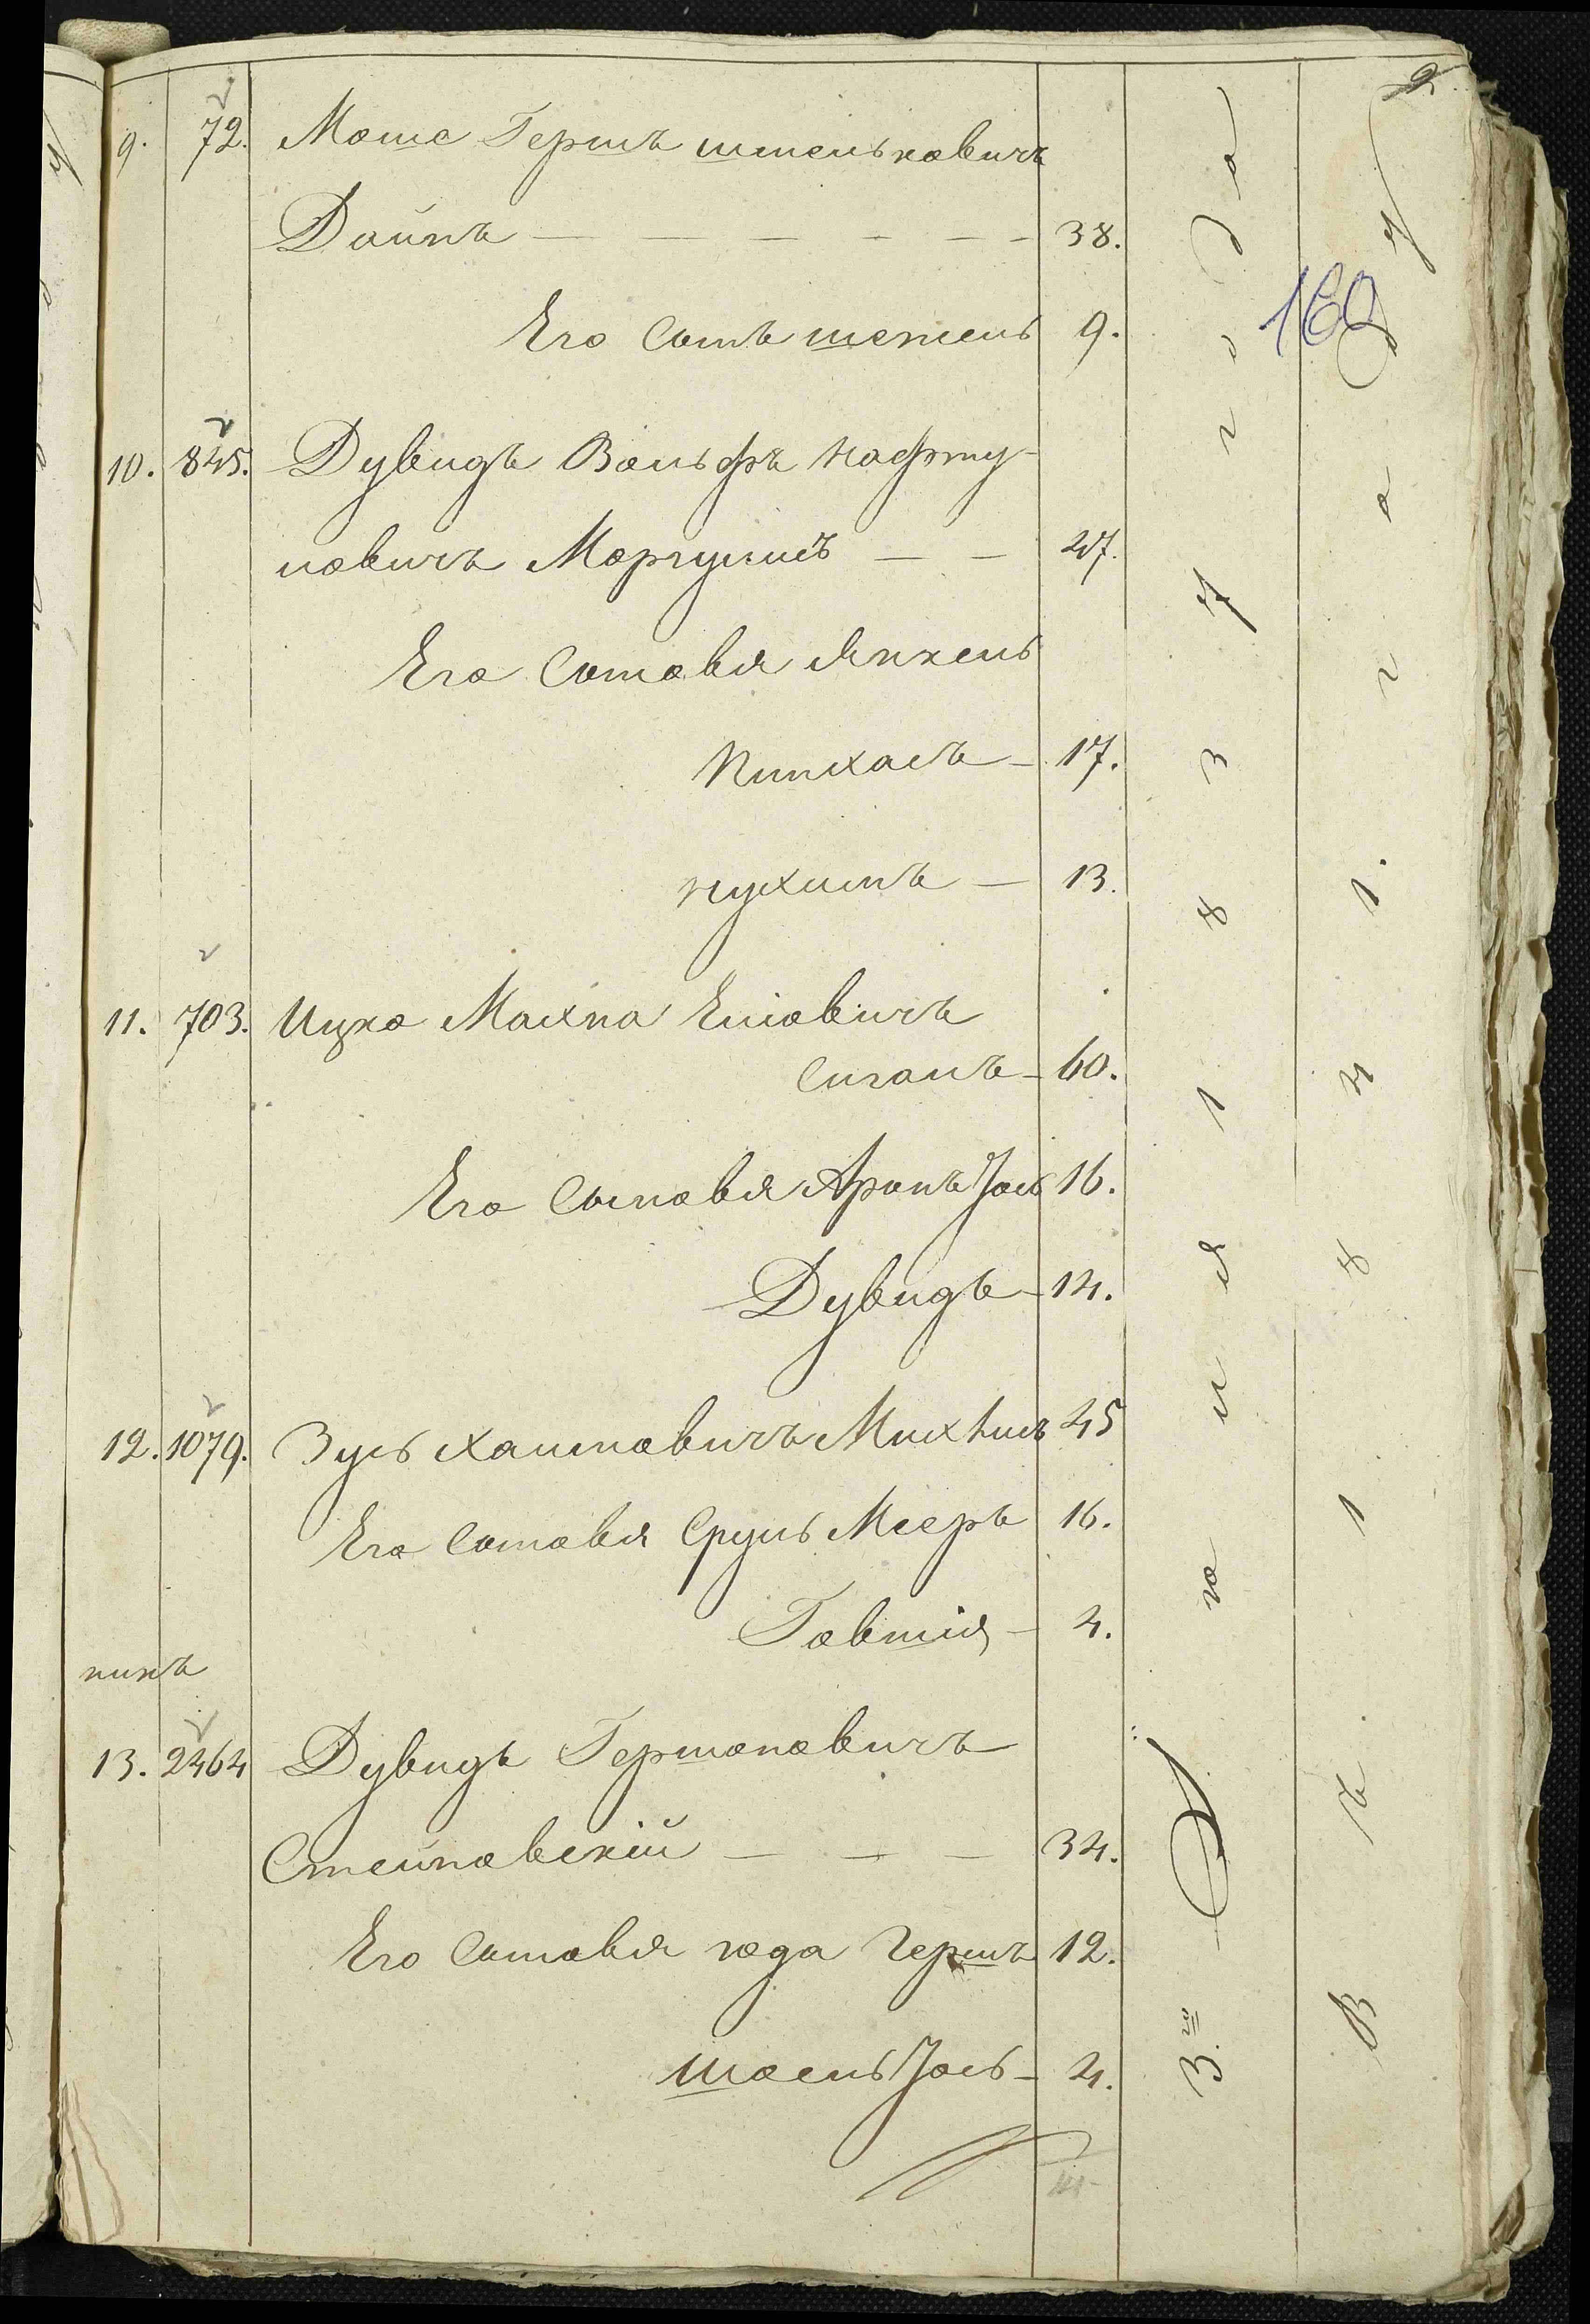 2
160
9. 72. Мошо Гершъ Шмельковичъ
Дайнъ — — — — — — 38.
Его Сынъ Шемель 9.
10. 845. Дувидъ Вольфъ Нафту-
ловичъ Моргулисъ — — 47.
Его Сыновья Янкель
Пинхасъ — 17.
Нухимъ — 13.
11. 703. Ицко Махна Еліовичъ
Сиганъ — 60.
Его Сыновья Аронъ Іось 16.
Дувидъ — 14.
12. 1079. Зусь Хаимовичъ Михѣлисъ 45
Его Сыновья Сруль Мееръ 16.
Говшія — 4.
никъ
13. 2464 Дувидъ Гершоновичъ
Стеиновскій — — — 34.
Его Сыновья Года Гершъ 12.
Шоель Іось — 4.
3.го Іюня 1837 года
Въ 1841. году